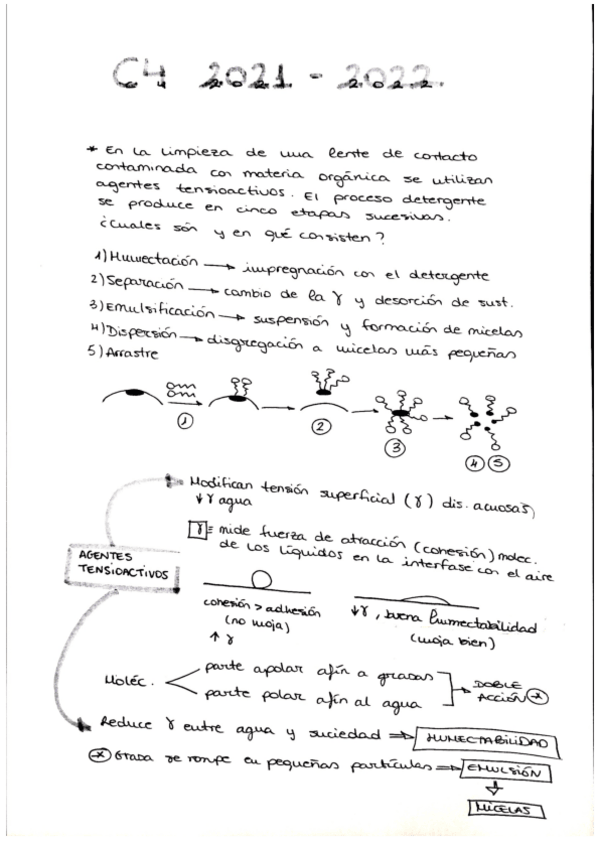 C4 2021 - 2022.
* En la limpieza de una lente de contacto
contaminada con materia orgánica se utilizan
agentes tensioactivos. El proceso detergente
se produce en cinco etapas sucesivas.
¿Cuales son y en qué consisten?
1) Humectación → impregnación con el detergente
2) Separación → cambio de la γ y desorción de sust.
3) Emulsificación → suspensión y formación de micelas
4) Dispersión → disgregación a micelas más pequeñas
5) Arrastre
1 2 3 4 5
Modifican tensión superficial (γ) dis. acuosas
↓ γ agua
γ = mide fuerza de atracción (cohesión) molec.
de los líquidos en la interfase con el aire
AGENTES
TENSIOACTIVOS
cohesión > adhesión
(no moja)
↑ γ
↓γ, buena humectabilidad
(moja bien)
Moléc.
parte apolar afín a grasas
parte polar afín al agua
DOBLE
ACCIÓN *
Reduce γ entre agua y suciedad ⇒ HUMECTABILIDAD
* Grasa se rompe en pequeñas partículas ⇒ EMULSIÓN
↓
MICELAS